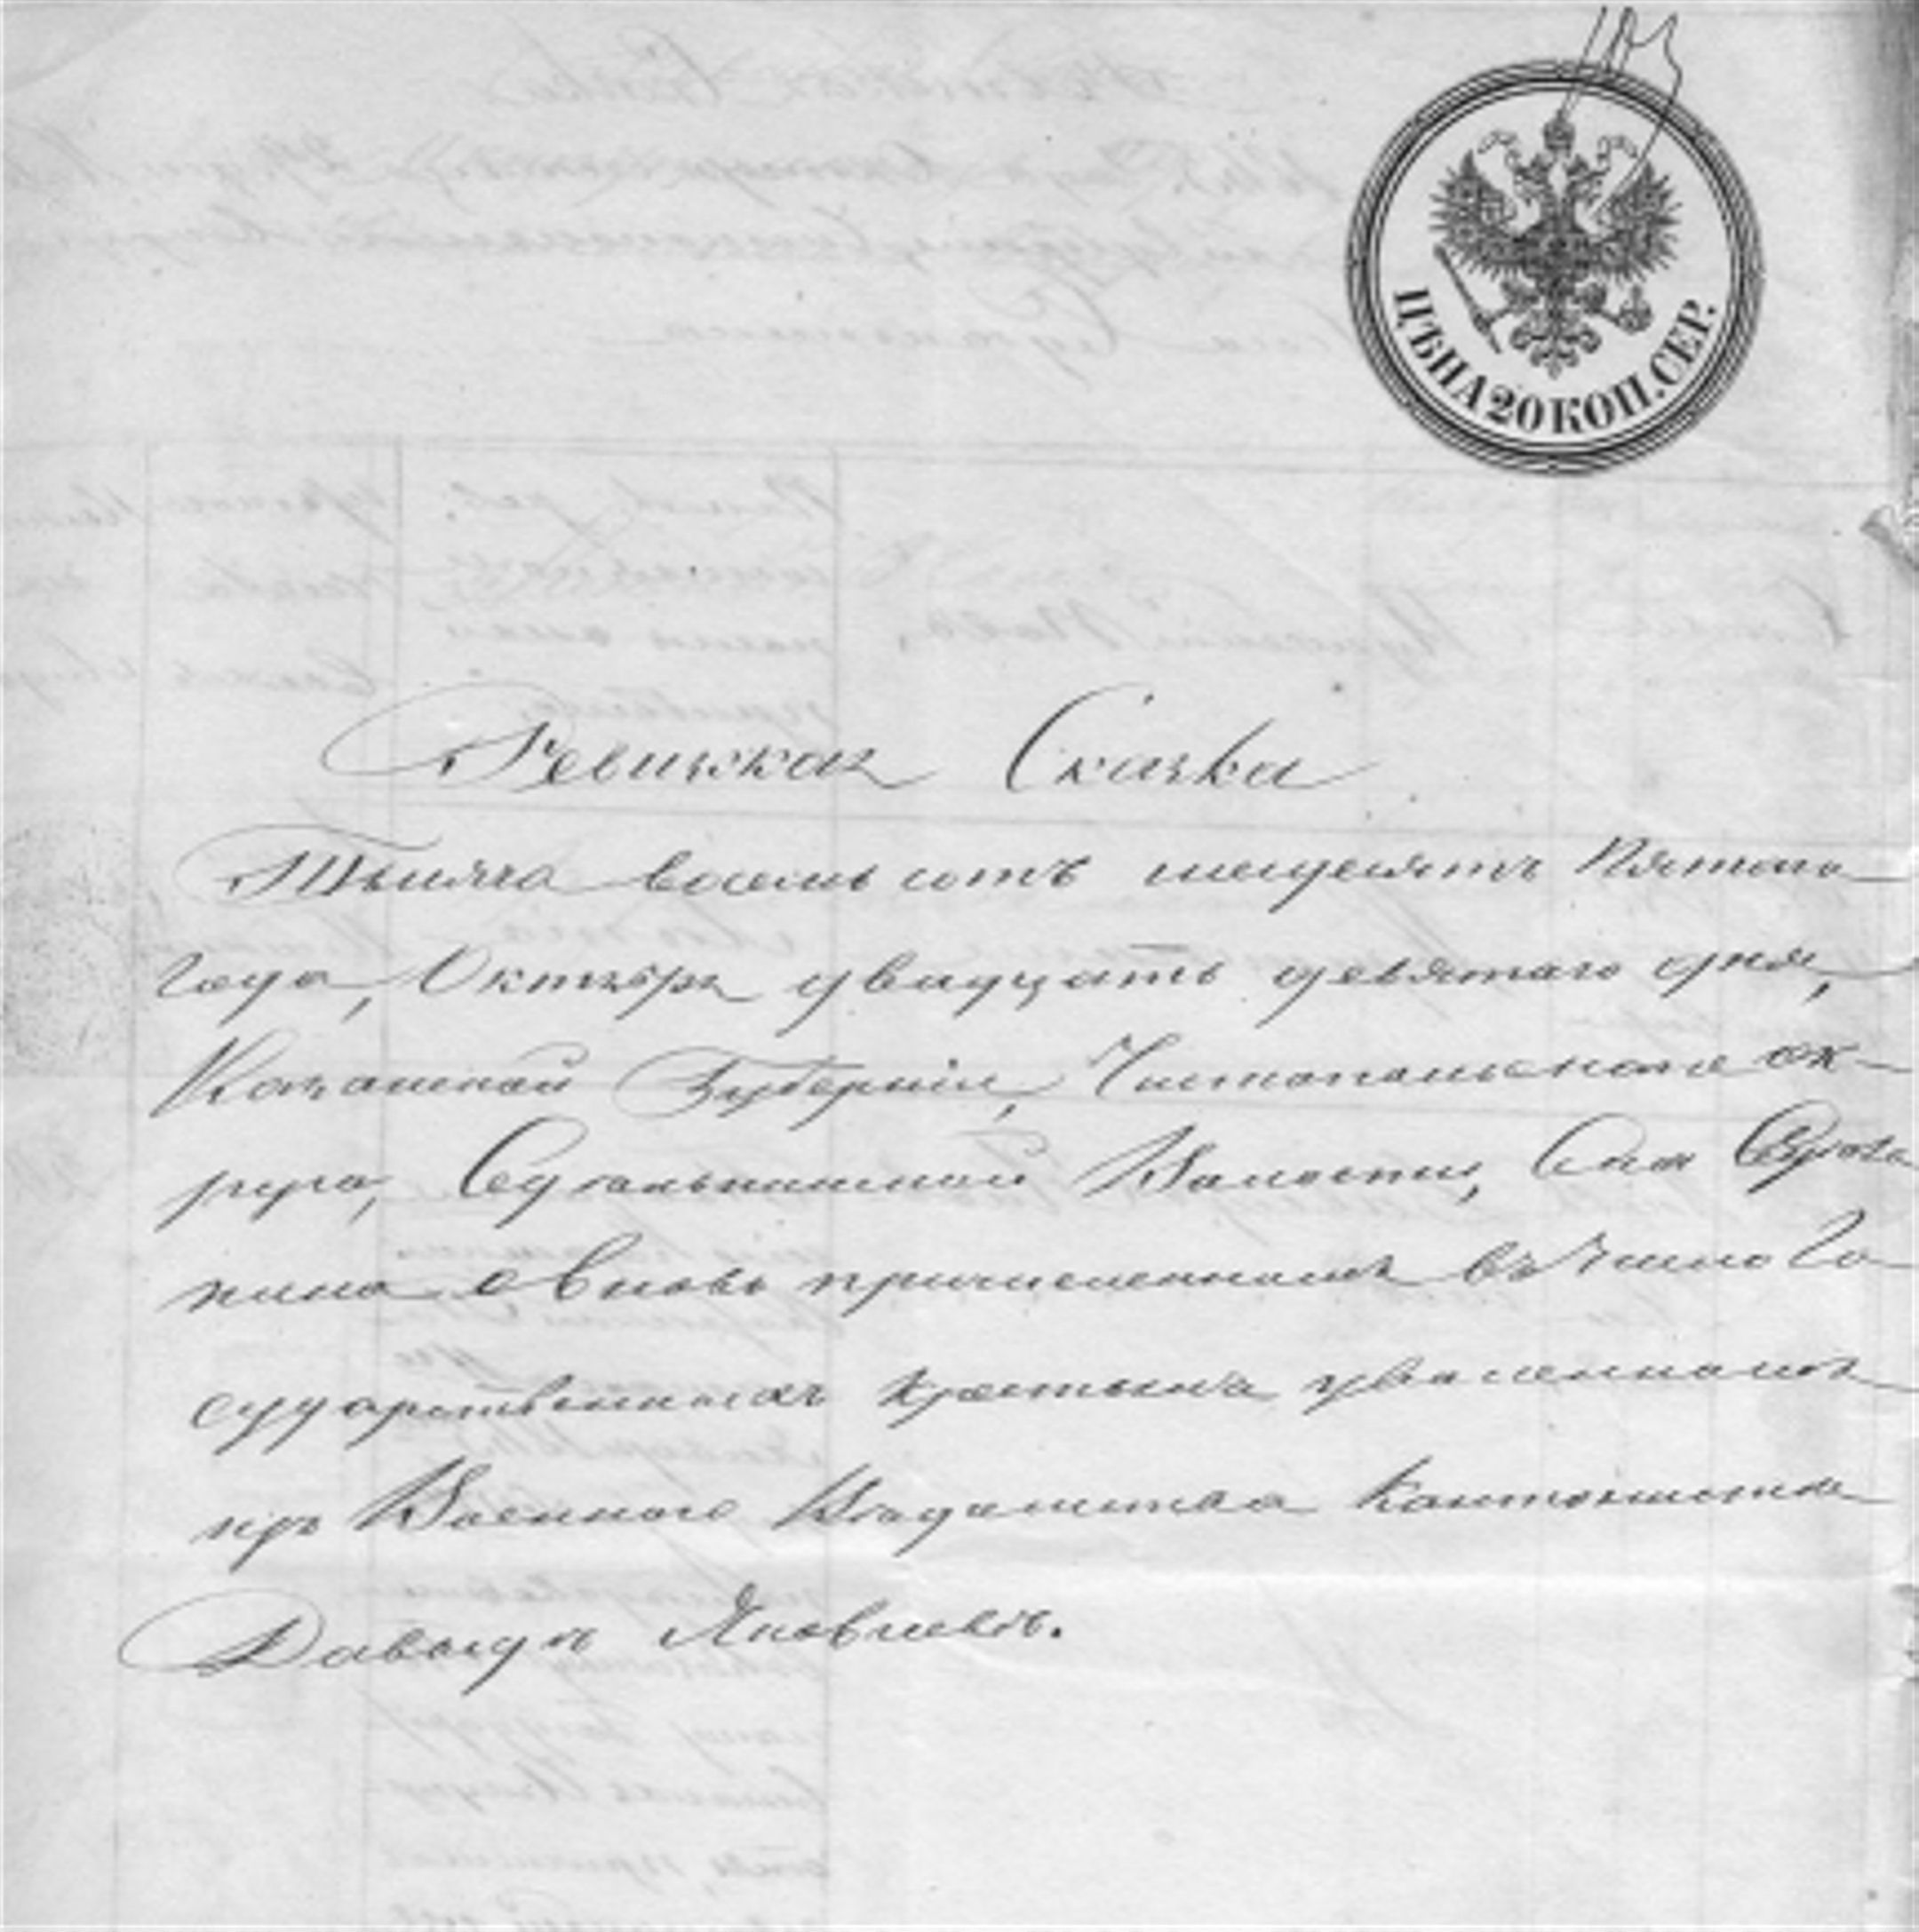 ЦѢНА 20 КОП. СЕР.
Ревизская Сказка
Тысяча восемь сотъ шездесятъ Пятаго
года, Октября двадцать девятаго дня,
Казанской Губерніи, Чистопольскаго ок-
руга, Волости, Села
о вновь причисленномъ въ число Го
сударственныхъ крестьянъ уволенномъ
изъ Военнаго Вѣдомства Кантонистѣ
Давыдѣ Яковлевѣ.